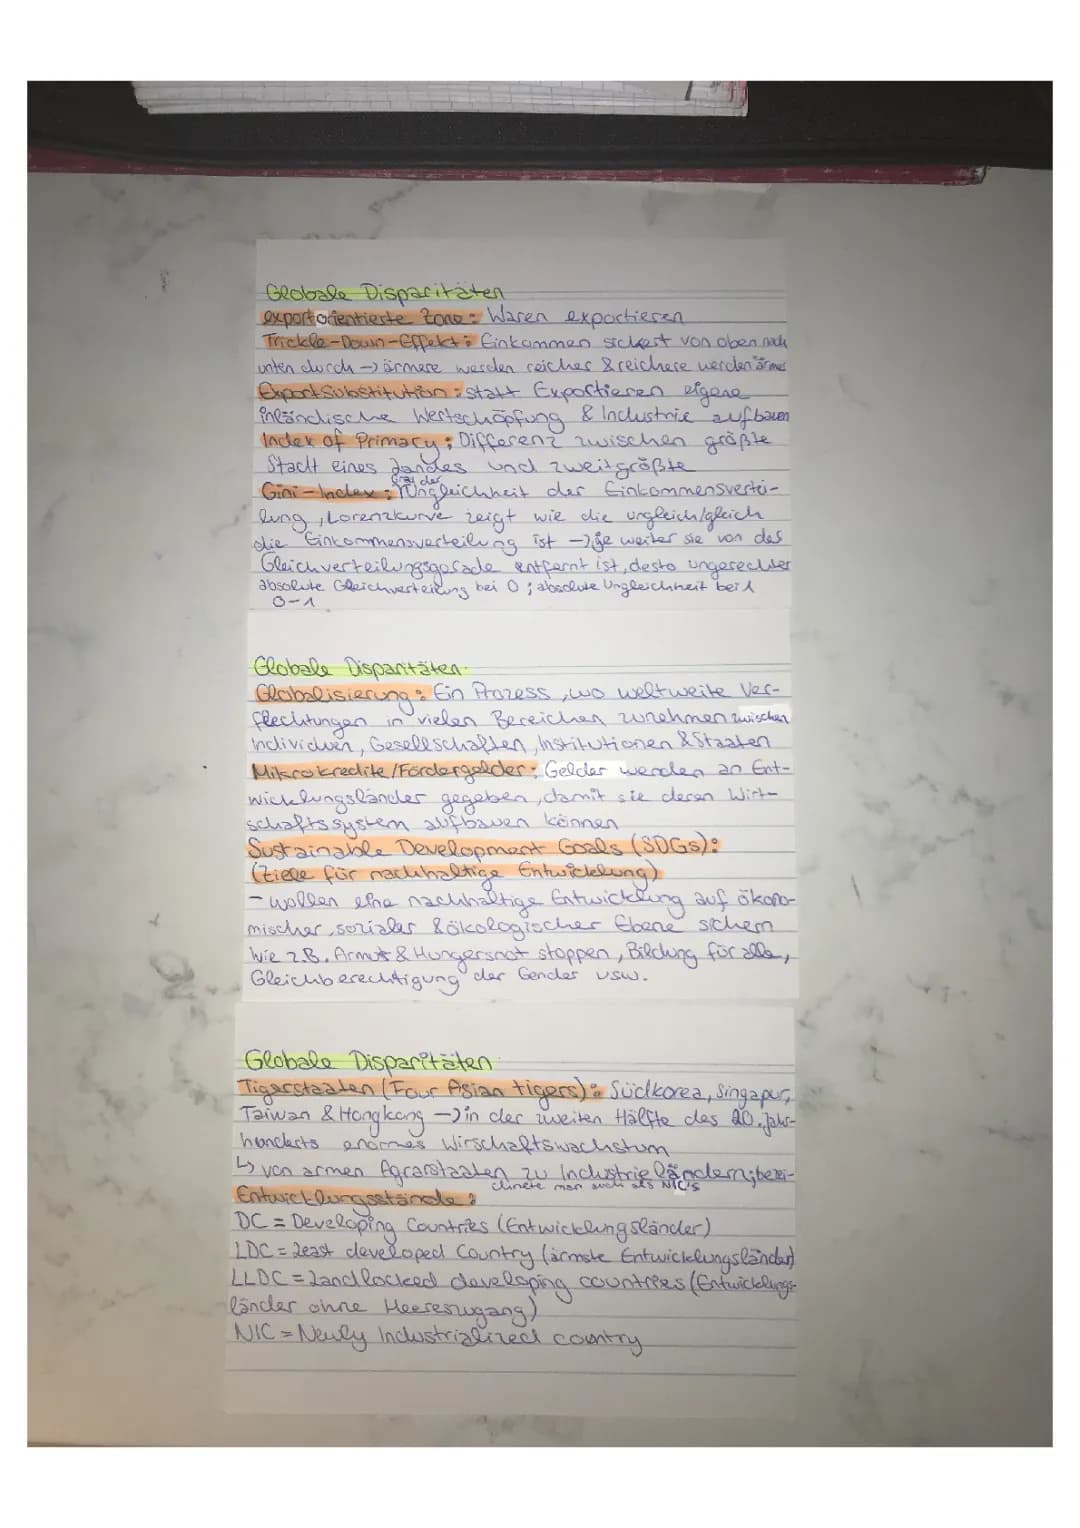 Globale Disparitäten
exportorientierte Zone: Waren exportieren
Trickle-Down-Effekt: Einkommen sickert von oben nach
unten durch → ärmere werden reicher & reichere werden ärmer
Exportsubstitution: statt Exportieren eigene
inländische Wertschöpfung & Industrie aufbauen
Index of Primacy: Differenz zwischen größte
Stadt eines Landes und zweitgrößte
Gini-Index: Grad der Ungleichheit der Einkommensvertei-
lung, Lorenzkurve zeigt wie die ungleich/gleich
die Einkommensverteilung ist → je weiter sie von der
Gleichverteilungsgerade entfernt ist, desto ungerechter
absolute Gleichverteilung bei 0; absolute Ungleichheit bei 1
0-1
Globale Disparitäten
Globalisierung: Ein Prozess, wo weltweite Ver-
flechtungen in vielen Bereichen zunehmen zwischen
Individuen, Gesellschaften, Institutionen & Staaten
Mikrokredite/Fördergelder: Gelder werden an Ent-
wicklungsländer gegeben, damit sie deren Wirt-
schaftssystem aufbauen können
Sustainable Development Goals (SDGs):
(Ziele für nachhaltige Entwicklung)
- wollen eine nachhaltige Entwicklung auf ökono-
mischer, sozialer & ökologischer Ebene sichern
wie z.B. Armut & Hungersnot stoppen, Bildung für alle,
Gleichberechtigung der Gender usw.
Globale Disparitäten
Tigerstaaten (Four Asian tigers): Südkorea, Singapur,
Taiwan & Hongkong → in der zweiten Hälfte des 20. Jahr-
hunderts enormes Wirschaftswachstum
↳ von armen Agrarstaaten zu Industrieländern; bezei-
chnete man auch als NIC's
Entwicklungsstände:
DC = Developing Countries (Entwicklungsländer)
LDC = Least developed Country (ärmste Entwicklungsländer)
LLDC = Landlocked developing countries (Entwicklungs-
länder ohne Meereszugang)
NIC = Newly Industrialized country